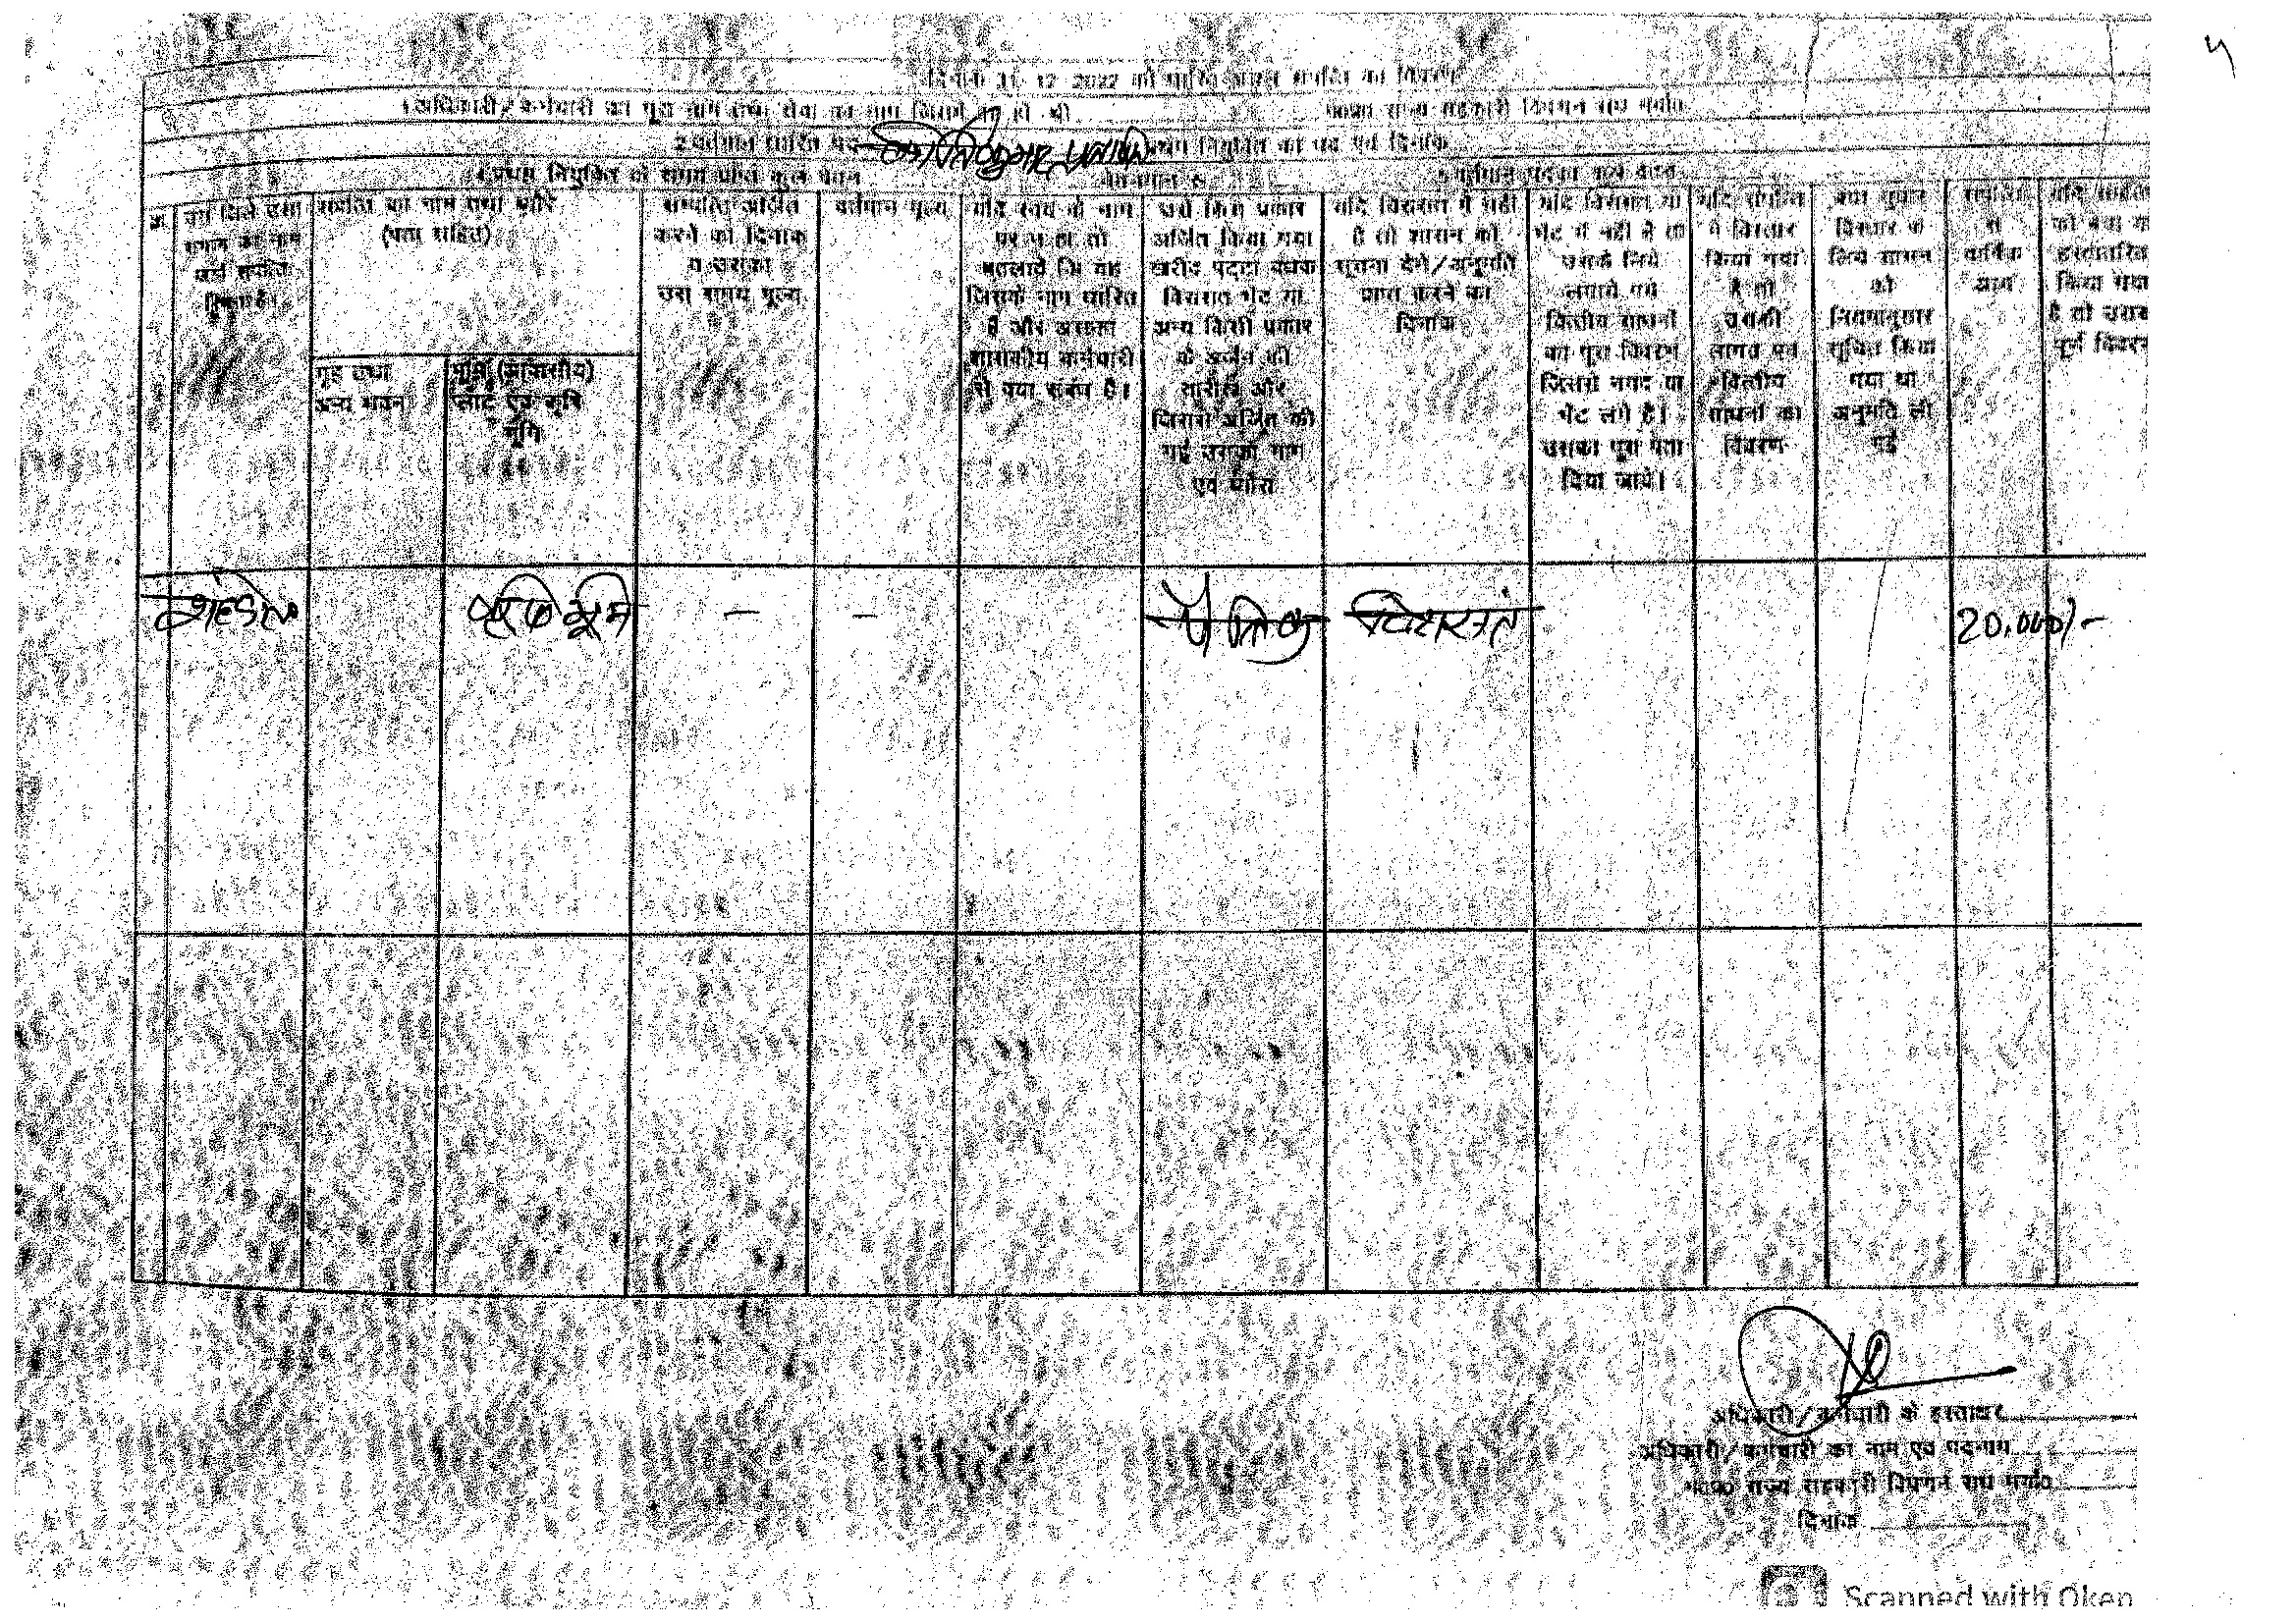 दिनांक 31-12-2022 को धारित अचल संपत्ति का विवरण
1.अधिकारी/कर्मचारी का पूरा नाम तथा सेवा का नाम जिसमें वह हो श्री म0प्र0 राज्य सहकारी विपणन संघ मर्या0
2.वर्तमान धारित पद प्रथम नियुक्ति का पद एवं दिनांक
4.प्रथम नियुक्ति के समय प्राप्त कुल वेतन वेतनमान रू
क्र.
उस जिले तथा
का नाम
जहाँ संपत्ति
स्थित है।
सम्पत्ति का नाम तथा ब्यौरे
(पता सहित)
गृह तथा
अन्य भवन
भूमि (आवासीय)
प्लाट एवं कृषि
भूमि
सम्पत्ति अर्जित
करने का दिनांक
व उसका
उस समय मूल्य
वर्तमान मूल्य
यदि स्वयं के नाम
पर न हो तो
बतलावें कि वह
जिसके नाम धारित
है और उसका
शासकीय कर्मचारी
से क्या संबंध है।
उसे किस प्रकार
अर्जित किया गया
खरीद पट्टा बंधक
विरासत भेंट या
अन्य किसी प्रकार
के अर्जन की
तारीख और
जिससे अर्जित की
गई उसका नाम
एवं ब्यौरा
यदि विरासत में नहीं
है तो शासन को
सूचना देने/अनुमति
प्राप्त करने का
दिनांक
यदि विरासत या
भेंट में नहीं है तो
उसके लिये
लगाये गये
वित्तीय साधनों
का पूरा विवरण
जिससे नगद या
भेंट लगे है।
उसका पूरा पता
दिया जाये।
यदि संपत्ति
में विस्तार
किया गया
है तो
उसकी
लागत एवं
वित्तीय
साधनों का
विवरण
क्या सुधार
विस्तार के
लिये शासन
को
नियमानुसार
सूचित किया
गया था
अनुमति ली
गई
संपत्ति
से
वार्षिक
आय
यदि संपत्ति
को
हस्तांतरित
किया गया
है तो उसका
पूर्ण विवरण
शहडोल
कृषि भूमि
—
—
पैत्रिक
विरासत
20,000/-
अधिकारी/कर्मचारी के हस्ताक्षर
अधिकारी/कर्मचारी का नाम एवं पदनाम
म0प्र0 राज्य सहकारी विपणन संघ मर्या0
दिनांक
Scanned with Oken